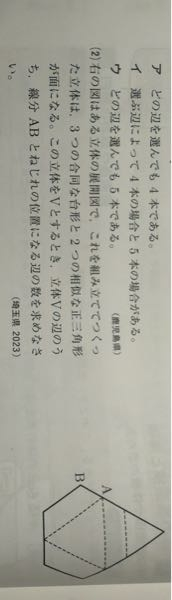 ア どの辺を選んでも4本である。
イ 選ぶ辺によって4本の場合と5本の場合がある。
ウ どの辺を選んでも5本である。
(鹿児島県)
(2) 右の図はある立体の展開図で、これを組み立ててつくっ
た立体は、3つの合同な台形と2つの相似な正三角形
が面になる。この立体をVとするとき、立体Vの辺のう
ち、線分ABとねじれの位置になる辺の数を求めなさ
い。
(埼玉県 2023)
A
B